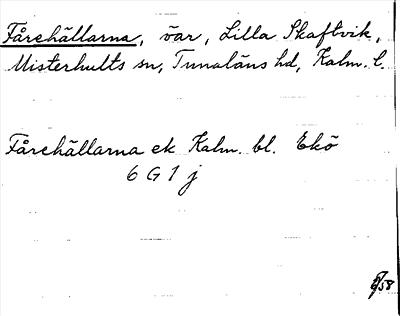 Fårehällarna, öar, Lilla Skaftvik,
Misterhults sn, Tunaläns hd, Kalm. l.
Fårehällarna ek Kalm. bl. Ekö
6 G 1 j